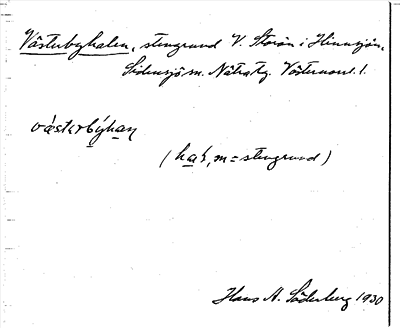 Västerbyhalen, stengrund V. Storön i Hinnsjön,
Sidensjö sn. Nätra tg. Västernorrl. l.
västerbýhaɳ
(hal, m = stengrund)
Hans A. Söderberg 1930